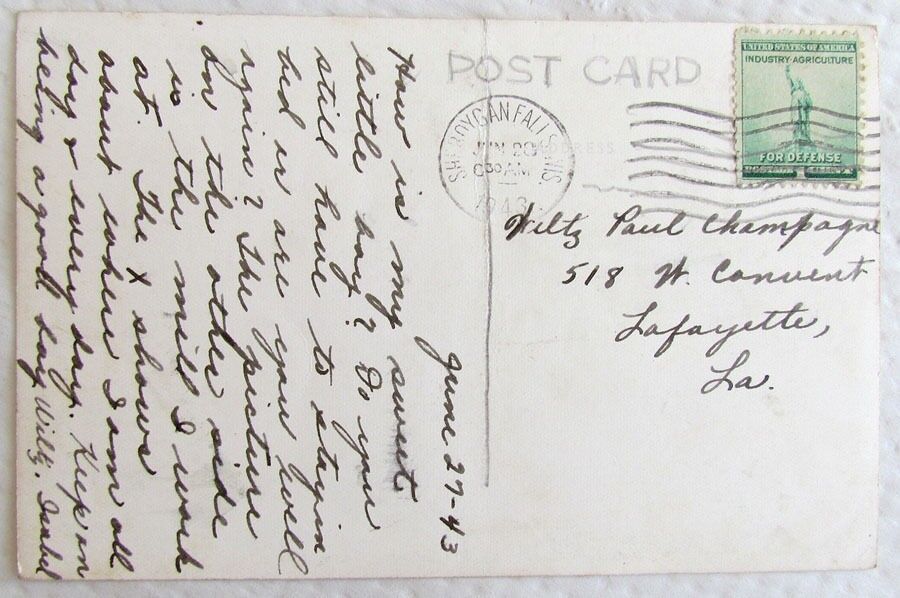 POST CARD
ADDRESS
SHEBOYGAN FALLS WIS.
JUN 28
8 30 AM
1943
UNITED STATES OF AMERICA
INDUSTRY·AGRICULTURE
FOR DEFENSE
POSTAGE 1
Wiltz Paul Champagne
518 W. Convent
Lafayette,
La.
June 27-43
How is my sweet
little boy? Do you
still have to stay in
bed or are you well
again? The picture
on the other side
is the mill I work
at. The x shows
about where I am all
day & every day. Keep on
being a good boy Wiltz. Isabel